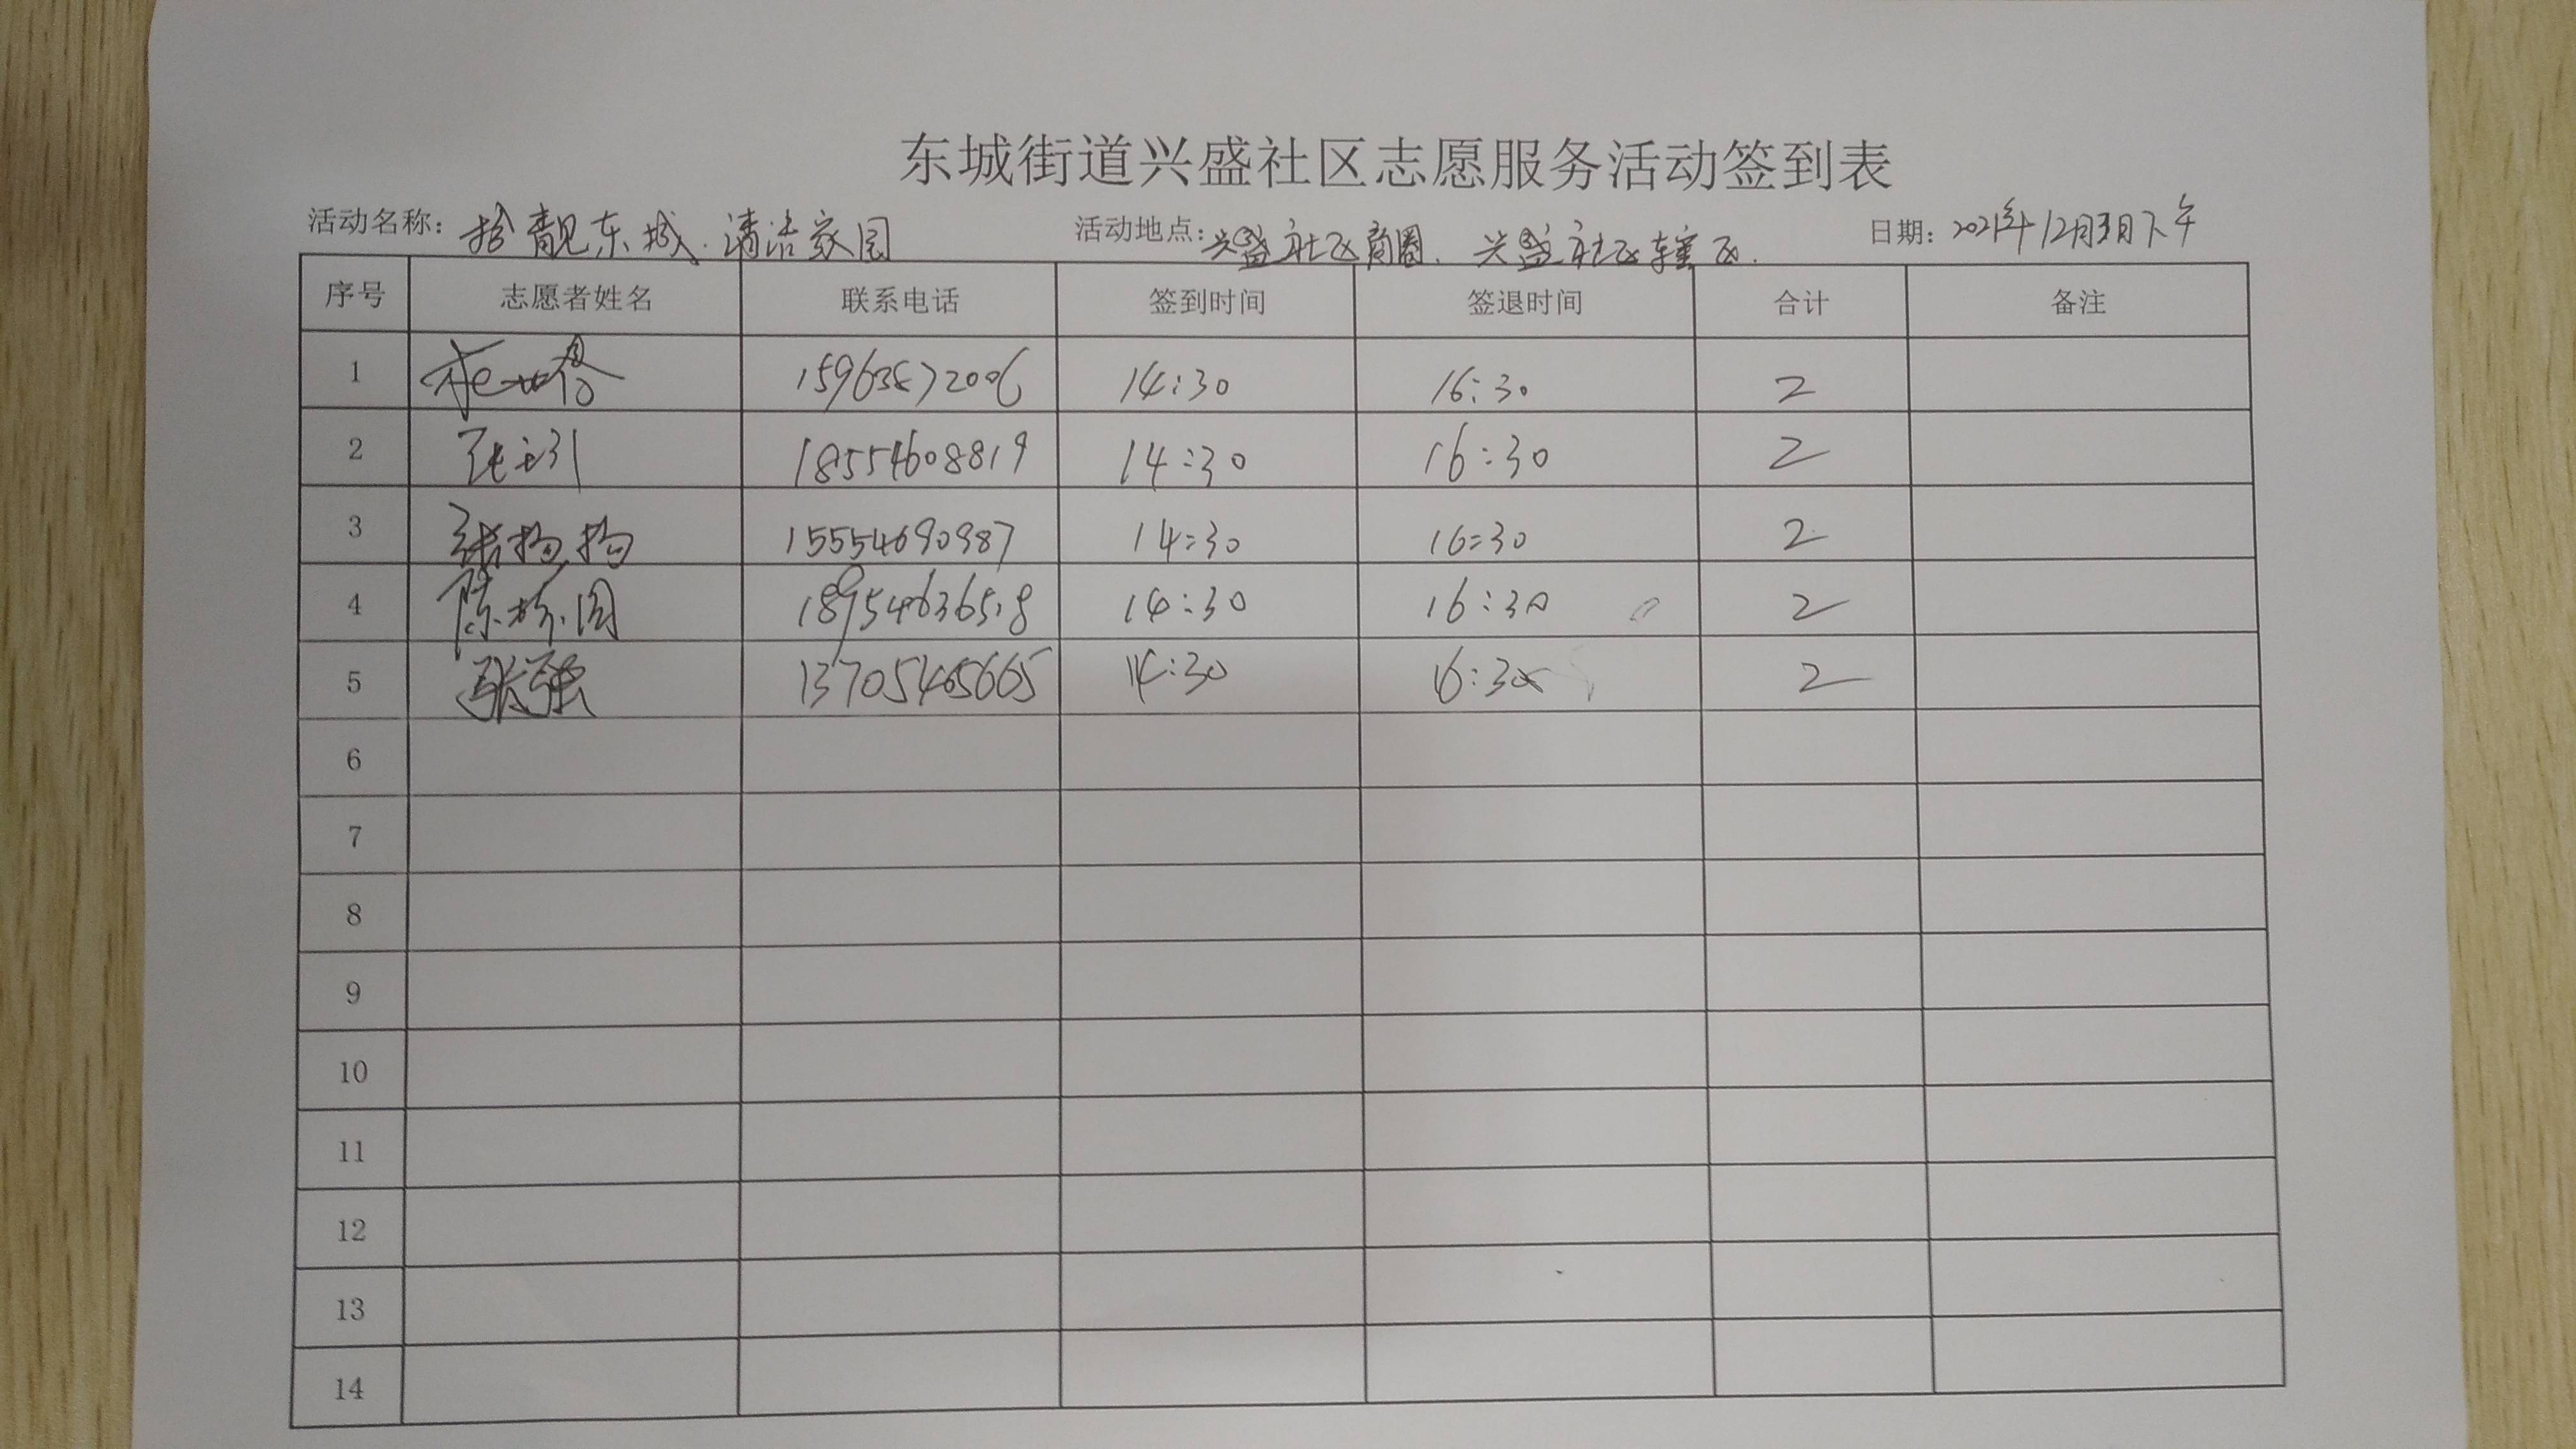 东城街道兴盛社区志愿服务活动签到表
活动名称：拾靓东城.清洁家园 活动地点：兴盛社区商圈、兴盛社区辖区. 日期：2021年12月 日下午
序号 志愿者姓名 联系电话 签到时间 签退时间 合计 备注
1 14:30 16:30 2
2 18554608819 14:30 16:30 2
3 张扬扬 15554690987 14:30 16:30 2
4 陈 18954636518 14:30 16:30 2
5 张强 13705465665 14:30 16:30 2
6
7
8
9
10
11
12
13
14